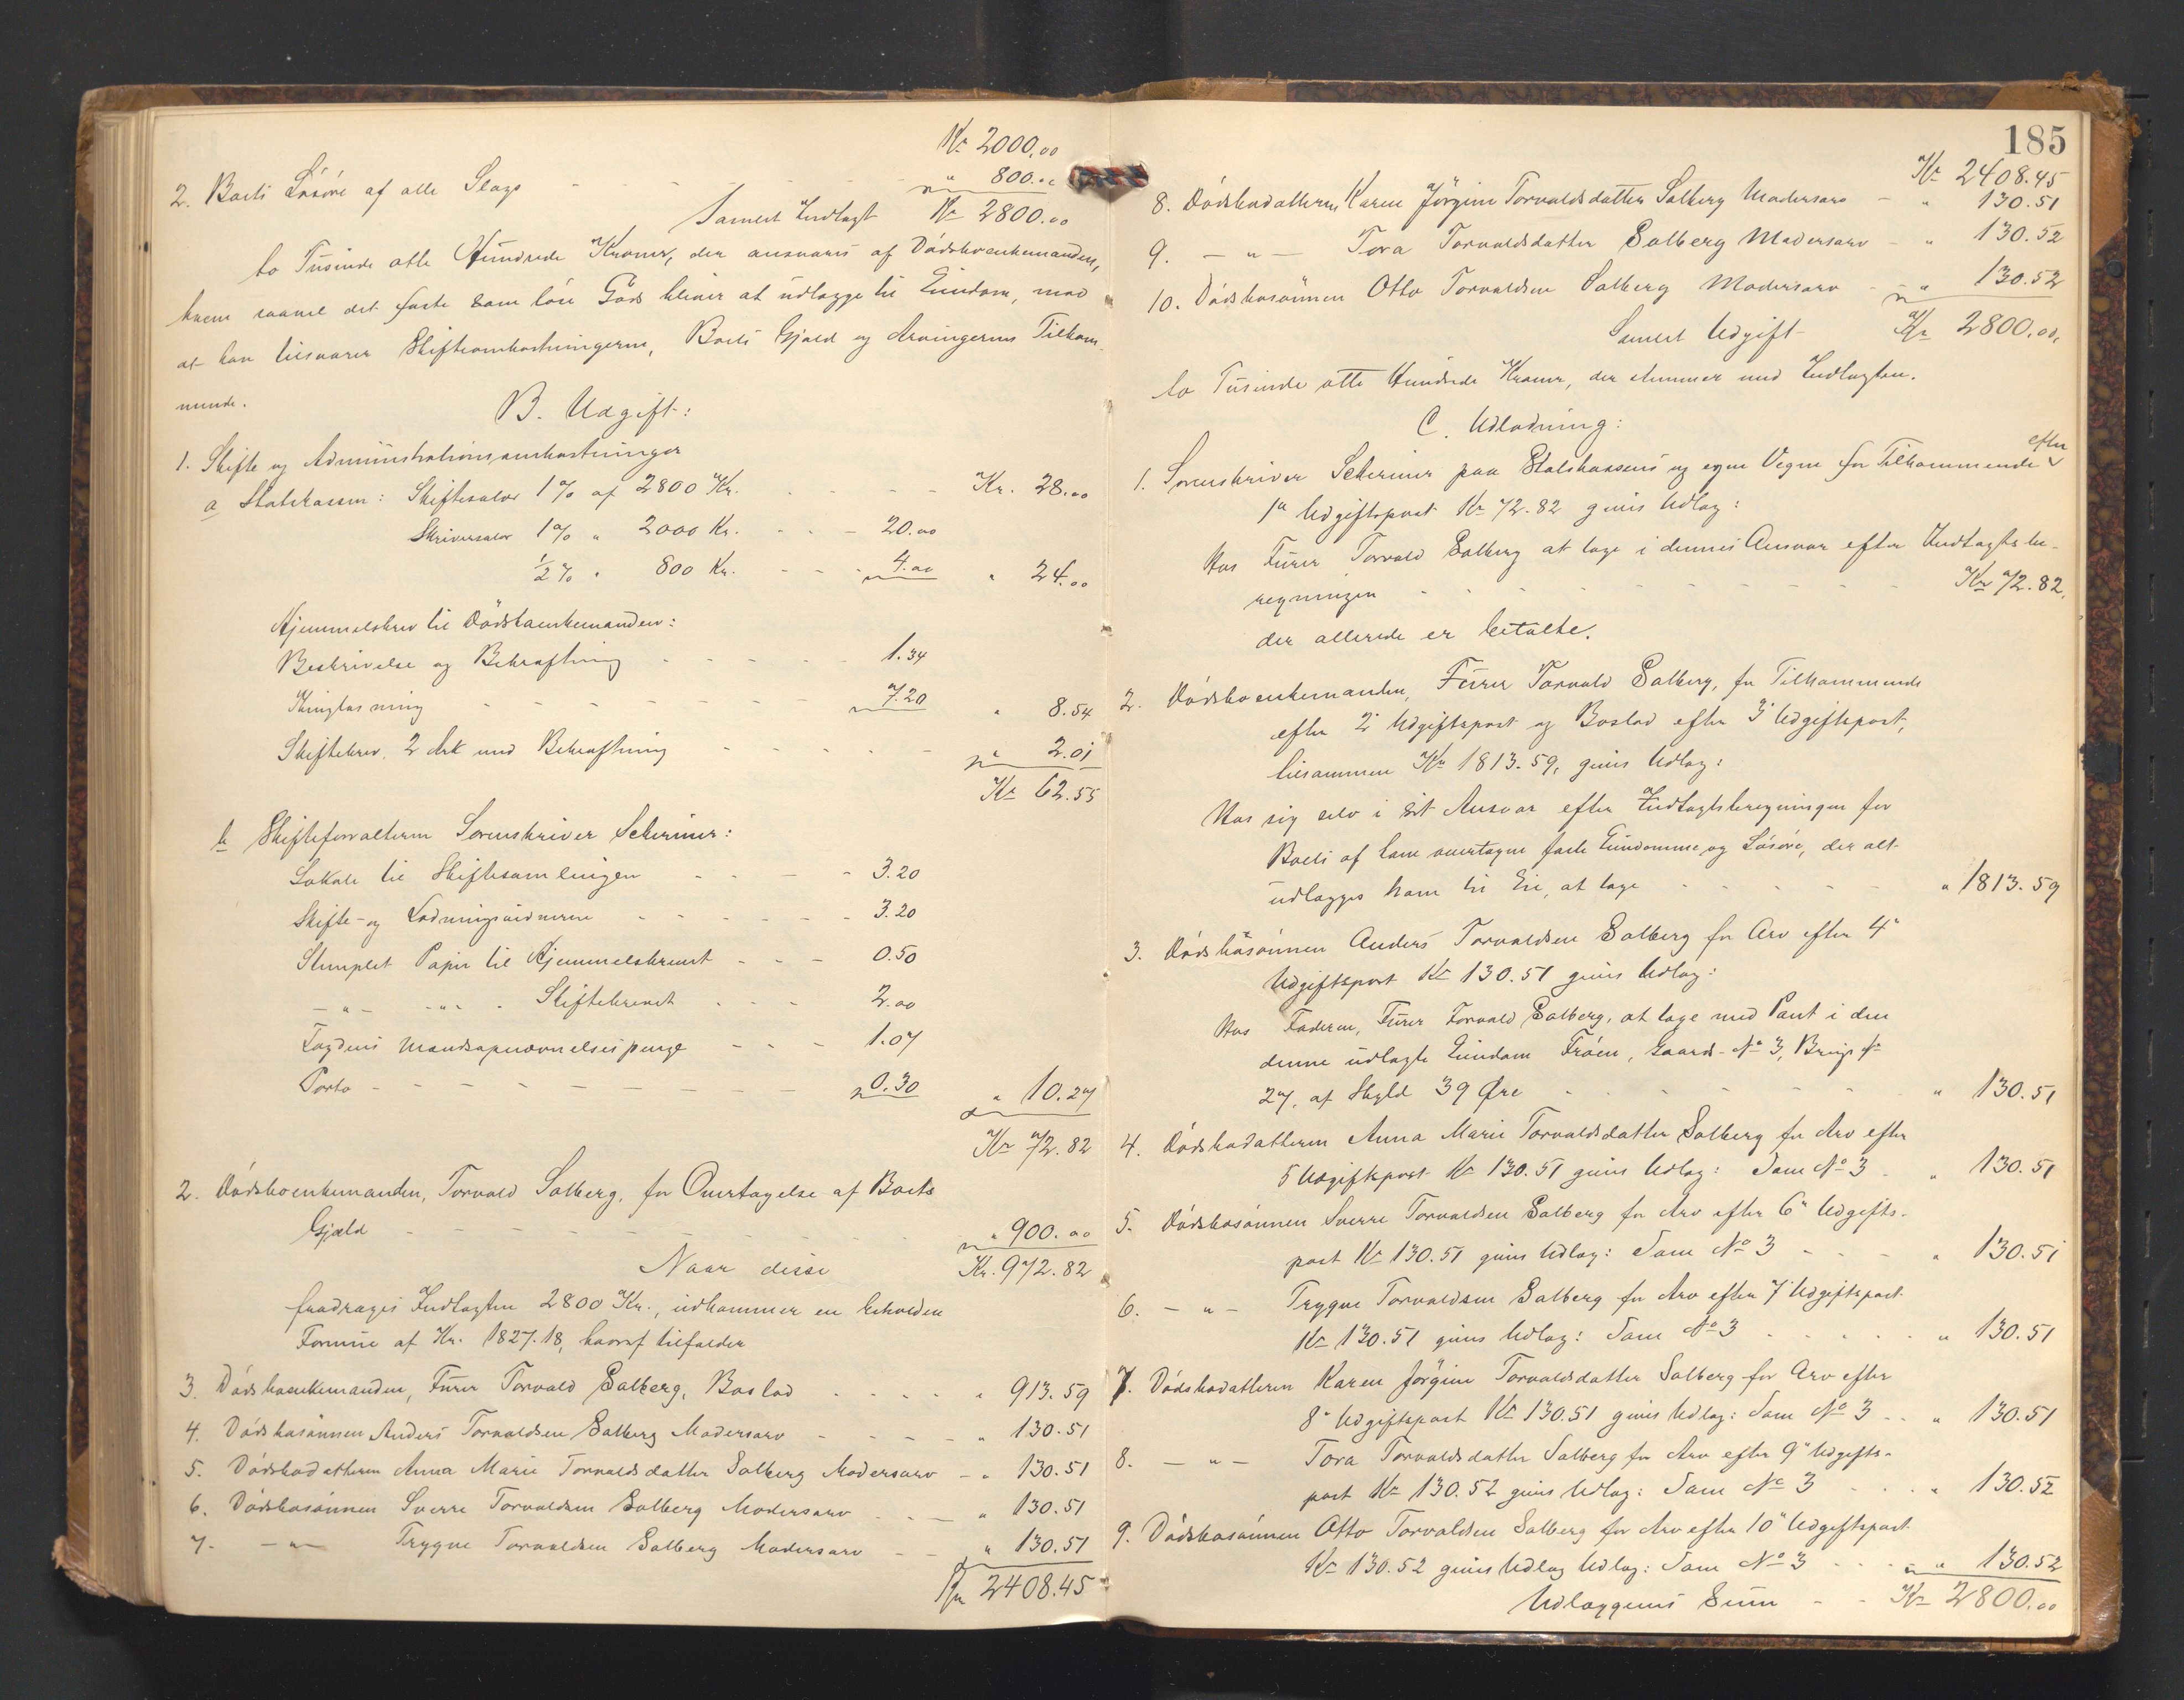 Kr 2000.00
2. Boets Løsøre af alle Slags - - - - " 800.00
Samlet Indtægt Kr 2800.00
to Tusinde otte Hundrede Kroner, der ansvares af Dødsboenkemanden,
hvem saavel det faste som løse Gods bliver at udlægge til Eiendom, mod
at han tilsvarer Skifteomkostningerne, Boets Gjæld og Arvingernes Tilkom-
mende.
B. Udgift:
1. Skifte og Administrationsomkostninger
a Statskassen: Skiftesalær 1% af 2800 Kr. - - - - Kr. 28.00
Skriversalær 1% " 2000 Kr. - - - 20.00
½% " 800 Kr. - - - 4.00 " 24.00
Hjemmelsbrev til Dødsboenkemanden:
Beskrivelse og Bekræftning - - - - - 1.34
Thinglæsning - - - - - - - 7.20 " 8.54
Skiftebrev, 2 Ark med Bekræftning - - - - - " 2.01
Kr 62.55
b Skifteforvalteren Sorenskriver Scheriner:
Lokale til Skiftesamlingen - - - - 3.20
Skifte- og Lodningsvidnerne - - - - - - 3.20
Stemplet Papir til Hjemmelsbrevet - - - 0.50
- " - - " - - Skiftebrevet - - - 2.00
Lagdens Mandsopnævnelsespenge - - - 1.07
Porto - - - - - - - - - 0.30 " 10.27
Kr 72.82
2. Dødsboenkemanden, Torvald Solberg, for Overtagelse af Boets
Gjæld - - - - - - - - " 900.00
Naar disse Kr. 972.82
fradrages Indtægten 2800 Kr., udkommer en beholden
Formue af Kr. 1827.18, hvoraf tilfalder
3. Dødsboenkemanden, Furer Torvald Solberg, Boslod - - - - - " 913.59
4. Dødsbosønnen Anders Torvaldsen Solberg Modersarv - - - - - " 130.51
5. Dødsbodatteren Anna Marie Torvaldsdatter Solberg Modersarv - " 130.51
6. Dødsbosønnen Sverre Torvaldsen Solberg Modersarv - - - " 130.51
7. - " - Trygve Torvaldsen Solberg Modersarv - - " 130.51
Kr 2408.45
185
Kr 2408.45
8. Dødsbodatteren Karen Jørgine Torvaldsdatter Solberg Modersarv - " 130.51
9. - " - Tora Torvaldsdatter Solberg Modersarv - " 130.52
10. Dødsbosønnen Otto Torvaldsen Solberg Modersarv - " 130.52
Samlet Udgift Kr 2800.00,
to Tusinde otte Hundrede Kroner, der stemmer med Indtægten.
C. Udlodning:
1. Sorenskriver Scheriner paa Statskassens og egne Vegne for Tilkommende efter
1ª Udgiftspost Kr 72.82 gives Udlæg:
Hos Furer Torvald Solberg at tage i dennes Ansvar efter Indtægtsbe-
regningen - - - - - - - - - Kr 72.82,
der allerede er betalte.
2. Dødsboenkemanden, Furer Torvald Solberg, for Tilkommende
efter 2" Udgiftspost og Boslod efter 3" Udgiftspost,
tilsammen Kr 1813.59, gives Udlæg:
Hos sig selv i sit Ansvar efter Indtægtsberegningen for
Boets af ham overtagne faste Eiendomme og Løsøre, der alt
udlægges ham til Eie, at tage - - - - - " 1813.59
3. Dødsbosønnen Anders Torvaldsen Solberg for Arv efter 4"
Udgiftspost Kr 130.51 gives Udlæg:
Hos Faderen, Furer Torvald Solberg, at tage med Pant i den
denne udlagte Eiendom Frøen, Gaards-No 3, Brugs No
27, af Skyld 39 Øre - - - - - - - " 130.51
4. Dødsbodatteren Anna Marie Torvaldsdatter Solberg for Arv efter
5 Udgiftspost Kr 130.51 gives Udlæg: Som No 3 - " 130.51
5. Dødsbosønnen Sverre Torvaldsen Solberg for Arv efter 6" Udgifts-
post Kr 130.51 gives Udlæg: Som No 3 - - - " 130.51
6. - " - Trygve Torvaldsen Solberg for Arv efter 7" Udgiftspost
Kr 130.51 gives Udlæg: Som No 3 - - - - - " 130.51
7. Dødsbodatteren Karen Jørgine Torvaldsdatter Solberg for Arv efter
8" Udgiftspost Kr 130.51 gives Udlæg: Som No 3 - - " 130.51
8. - " - Tora Torvaldsdatter Solberg for Arv efter 9" Udgifts-
post Kr 130.52 gives Udlæg: Som No 3 - - - " 130.52
9. Dødsbosønnen Otto Torvaldsen Solberg for Arv efter 10" Udgiftspost
Kr 130.52 gives Udlæg Udlæg: Som No 3 - - - " 130.52
Udlæggenes Sum - - Kr 2800.00